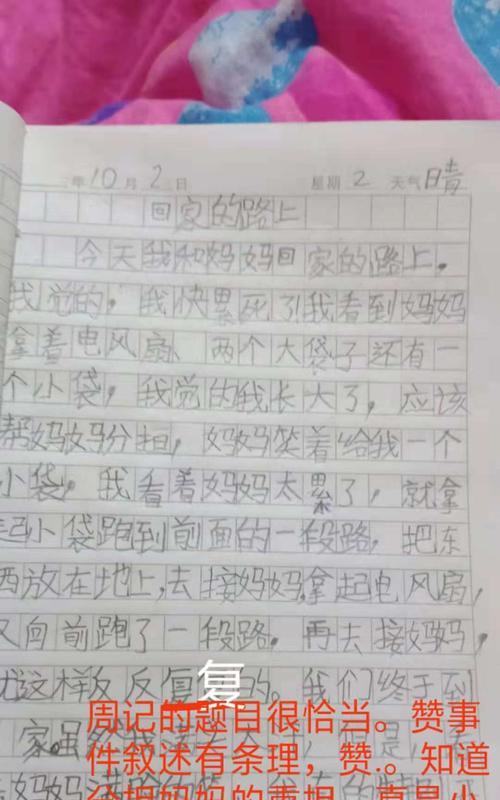 年10月2日 星期2 天气晴
回家的路上
今天我和妈妈回家的路上。
我觉的，我快累死了！我看到妈妈
拿着电风扇、两个大袋子还有一
个小袋，我觉的我长大了，应该
帮妈妈分担，妈妈笑着给我一个
小袋，我看着妈妈太累了，就拿
起小袋跑到前面的一段路，把东
西放在地上，去接妈妈，拿起电风扇，
又向前跑了一段路。再去接妈妈，
就这样反反复 复 的。我们终于到
家。虽然我
周记的题目很恰当。赞事
件叙述有条理，赞.。知道
分担妈妈的重担，真是小